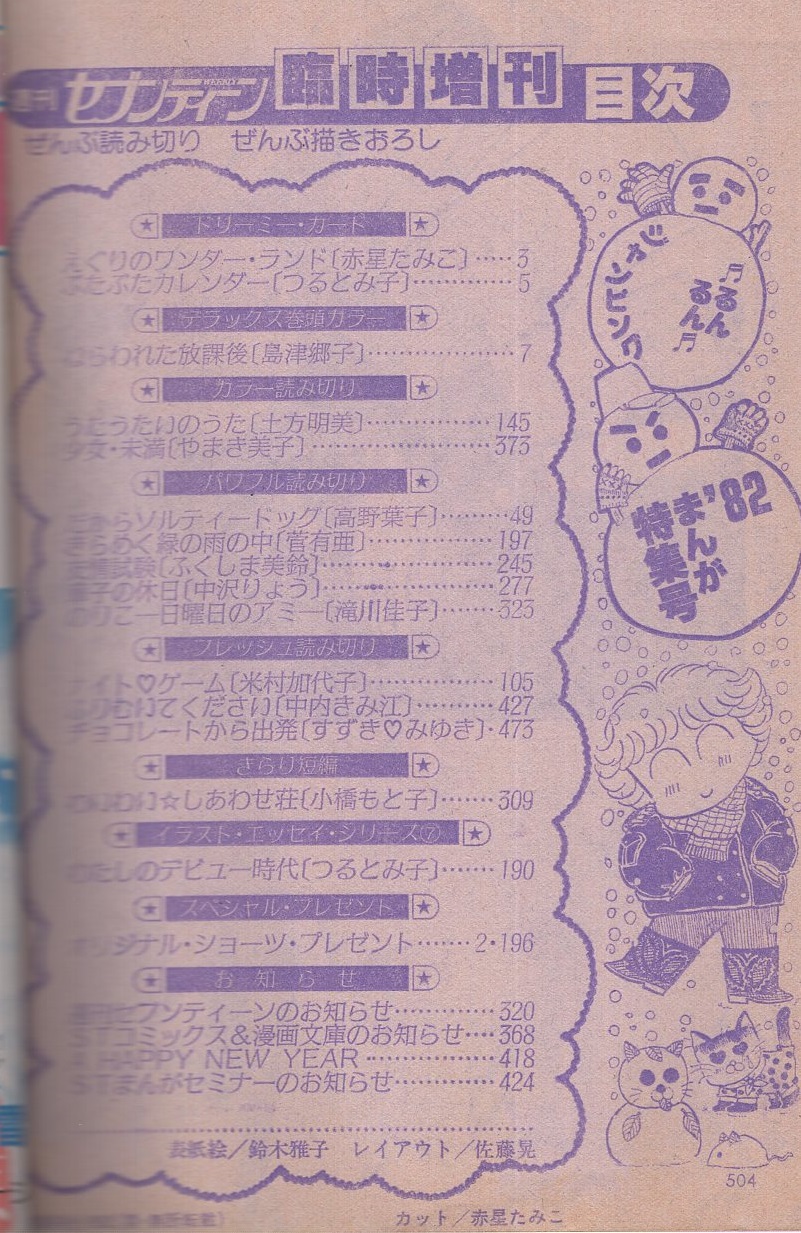 週刊 セブンティーン WEEKLY 臨時増刊 目次
ぜんぶ読み切り ぜんぶ描きおろし
★ドリーミー・カード★
えぐりのワンダー・ランド〔赤星たみこ〕……3
ぷたぷたカレンダー〔つるとみ子〕……5
★デラックス巻頭カラー★
われた放課後〔島津郷子〕……7
★カラー読み切り★
うたうたいのうた〔土方明美〕……145
少女・未満〔やまき美子〕……373
★パワフル読み切り★
だからソルティードッグ〔高野葉子〕……49
きらめく緑の雨の中〔菅有亜〕……197
試験〔ふくしま美鈴〕……245
子の休日〔中沢りょう〕……277
りこ―日曜日のアミー〔滝川佳子〕……323
★フレッシュ読み切り★
ナイト♡ゲーム〔米村加代子〕……105
ふりむいてください〔中内きみ江〕……427
チョコレートから出発〔すずき♡みゆき〕・473
★きらり短編★
☆しあわせ荘〔小橋もと子〕……309
★イラスト・エッセイ・シリーズ⑦★
わたしのデビュー時代〔つるとみ子〕……190
★スペシャル・プレゼント★
オリジナル・ショーツ・プレゼント……2・196
★お知らせ★
週刊セブンティーンのお知らせ……320
STコミックス&漫画文庫のお知らせ…368
HAPPY NEW YEAR……418
STまんがセミナーのお知らせ……424
表紙絵/鈴木雅子 レイアウト/佐藤晃
カット/赤星たみこ
♬るんるん♬
ジャンピング
'82
まんが
特集号
504